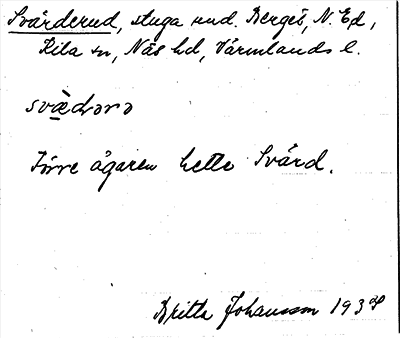 Svärderud, stuga und. Berget, N. Ed,
Kila sn, Näs hd, Värmlands l.
svæ̀dərə
Förre ägaren hette Svärd.
Britta Johansson 193